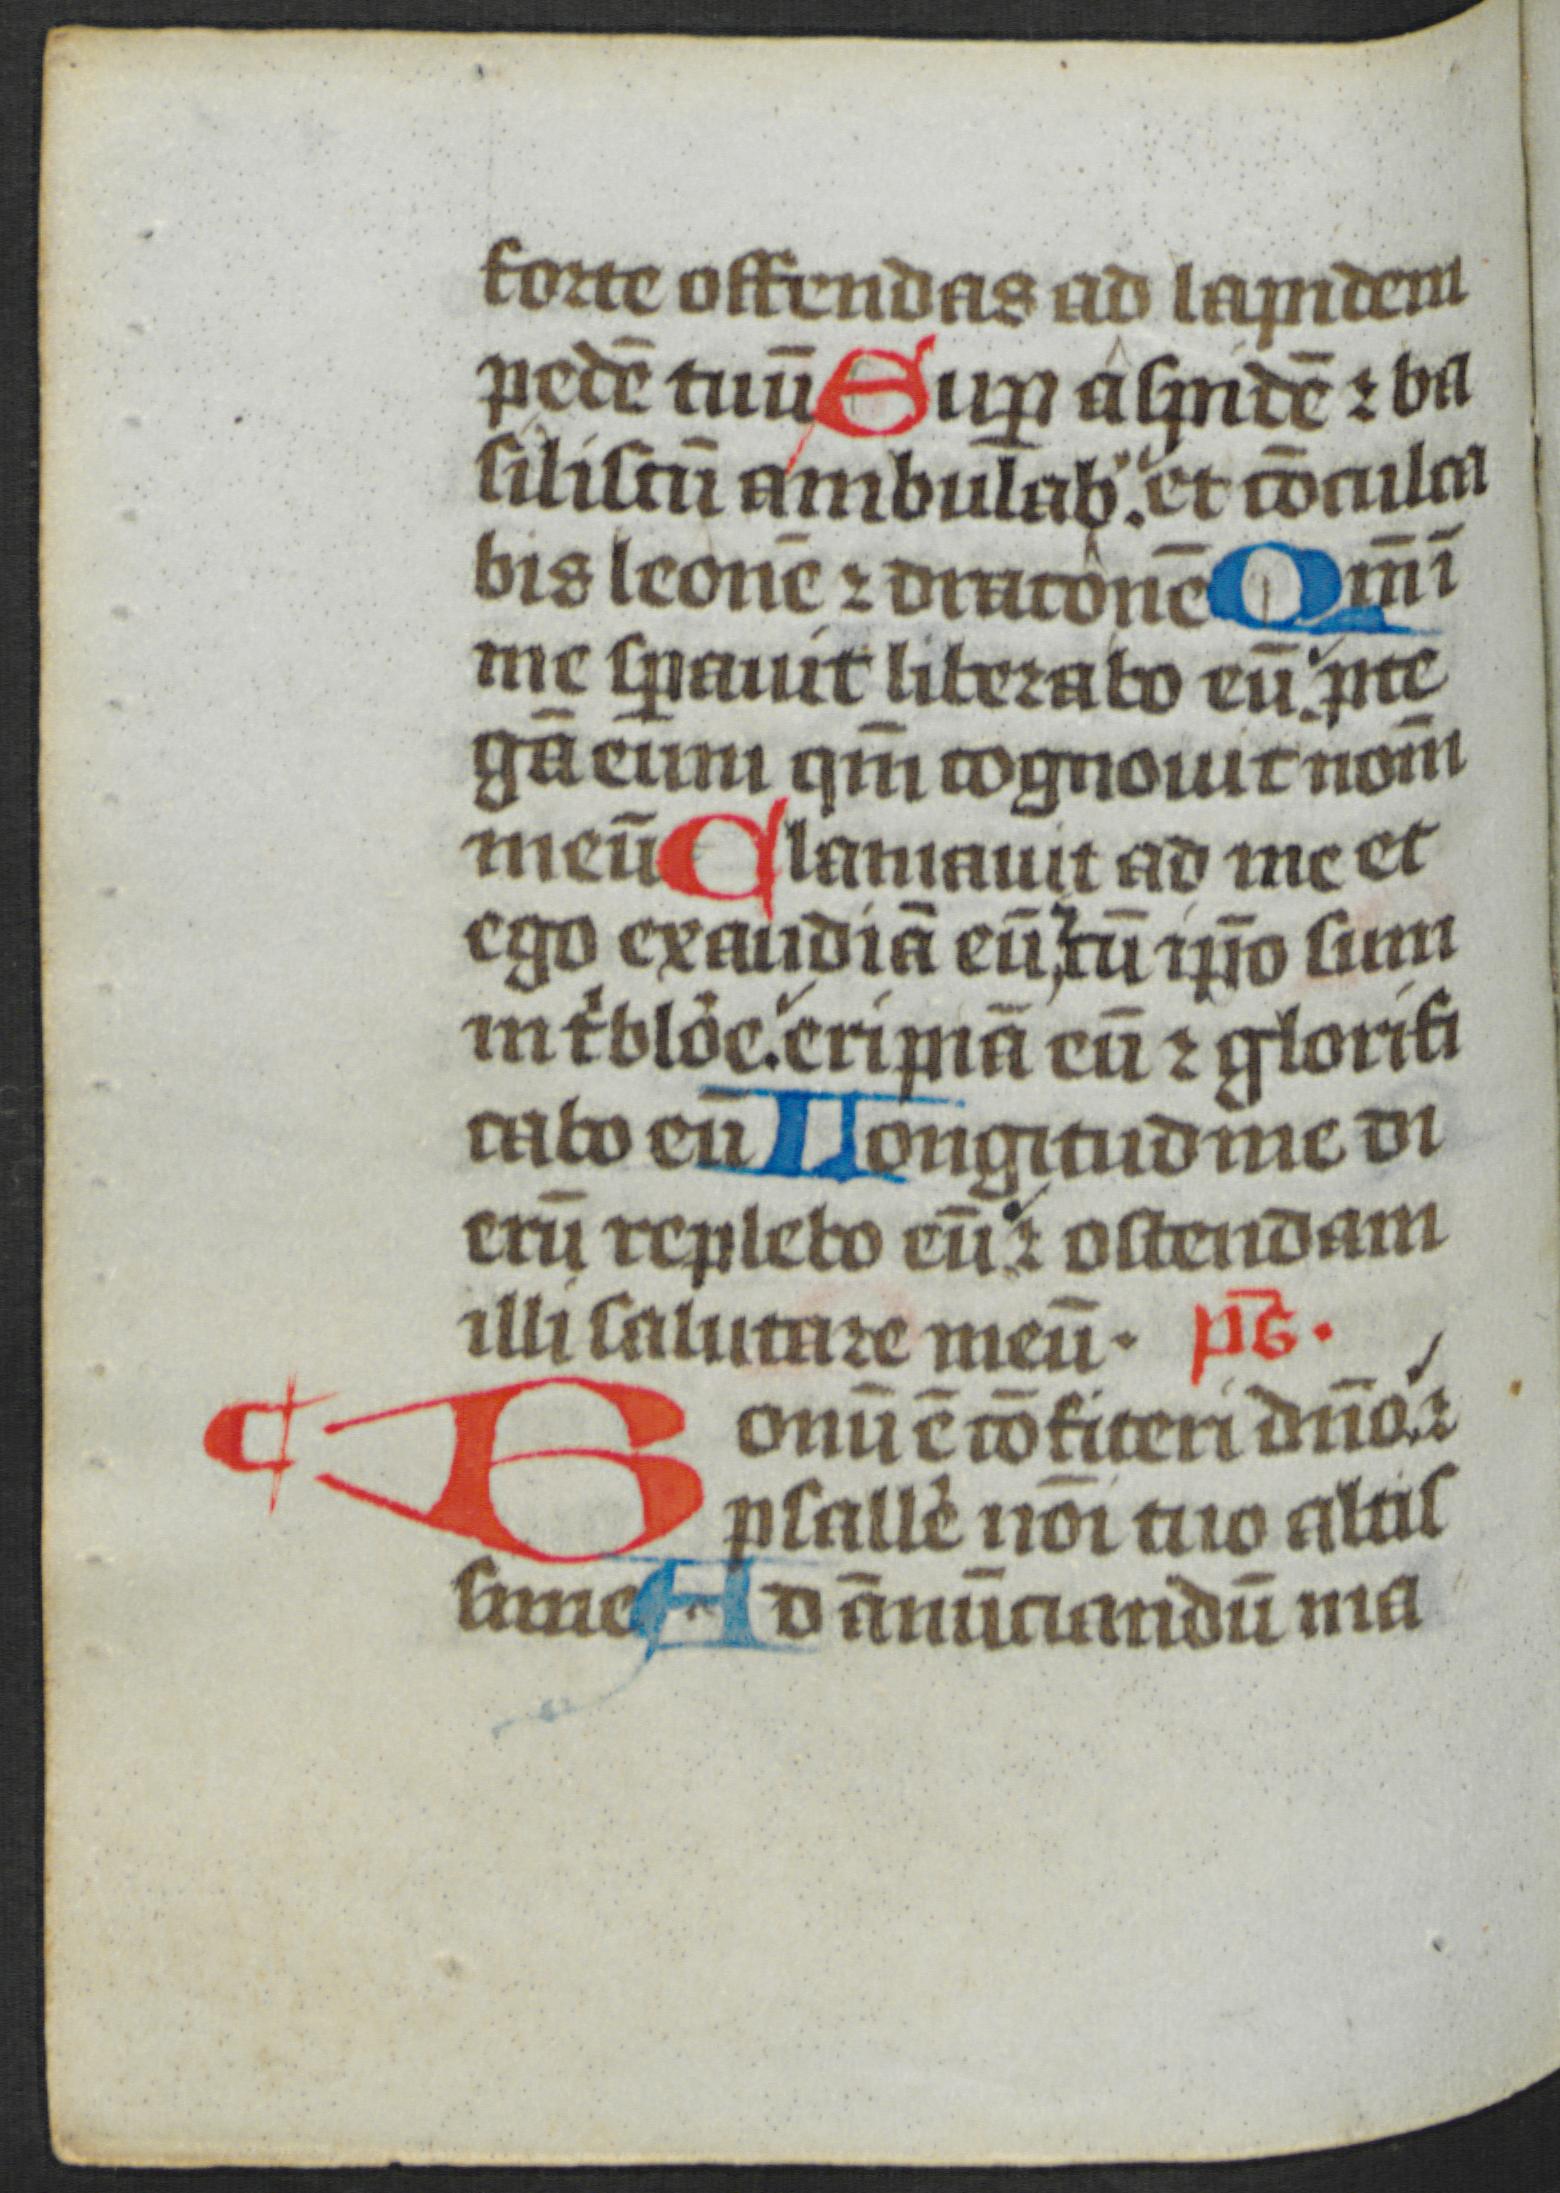 forte offendas ad lapidem
pedē tuū Suꝑ aſpidē ⁊ ba
ſiliſcū ambulab̾. et cōculca
bis leonē ⁊ draconē Qm̄ ī
me ſꝑauit liberabo eū. ꝓte
gā eum qm̄ cognouit nom̄
meū Clamauit ad me et
ego exaudiā eū, cū ip̄o ſum
in t̾bloe. eripiā eū ⁊ glorifi
cabo eū Longitudine di
erū replebo eū ⁊ oſtendam
illi ſalutare meū. pſ̄.
¶ Bonū ē cōfiteri dn̄o. ⁊
pſalle̾ noī tuo altiſ
ſime Ad ānūciandū ma